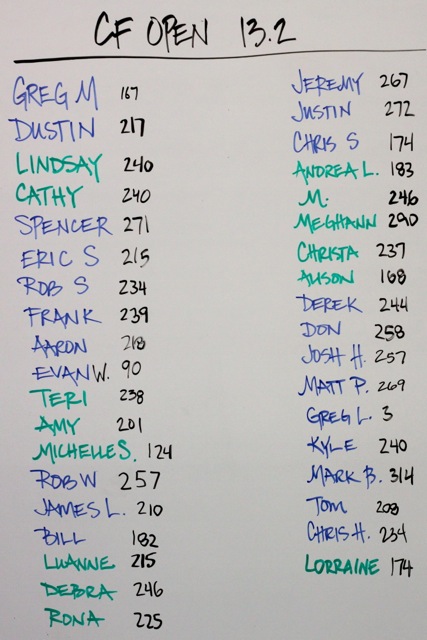 CF OPEN 13.2
GREG M 167
DUSTIN 217
LINDSAY 240
CATHY 240
SPENCER 271
ERIC S 215
ROB S 234
FRANK 239
AARON 218
EVAN W. 90
TERI 238
AMY 201
MICHELLE S. 124
ROB W 257
JAMES L. 210
BILL 182
LUANNE 215
DEBRA 246
RONA 225
JEREMY 267
JUSTIN 272
CHRIS S 174
ANDREA L. 183
M. 246
MEGHANN 290
CHRISTA 237
ALISON 168
DEREK 244
DON 258
JOSH H. 257
MATT P. 269
GREG L. 3
KYLE 240
MARK B. 314
TOM 208
CHRIS H. 234
LORRAINE 174